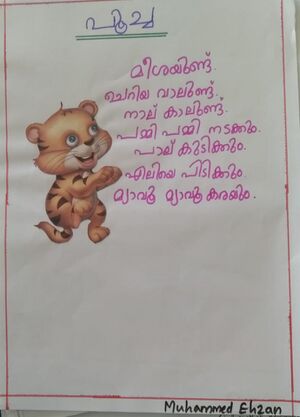 പൂച്ച
മീശയുണ്ട്.
ചെറിയ വാലുണ്ട്.
നാല് കാലുണ്ട്.
പമ്മി പമ്മി നടക്കും.
പാല് കുടിക്കും.
എലിയെ പിടിക്കും.
മ്യാവൂ മ്യാവൂ കരയും.
Muhammed Ehzan